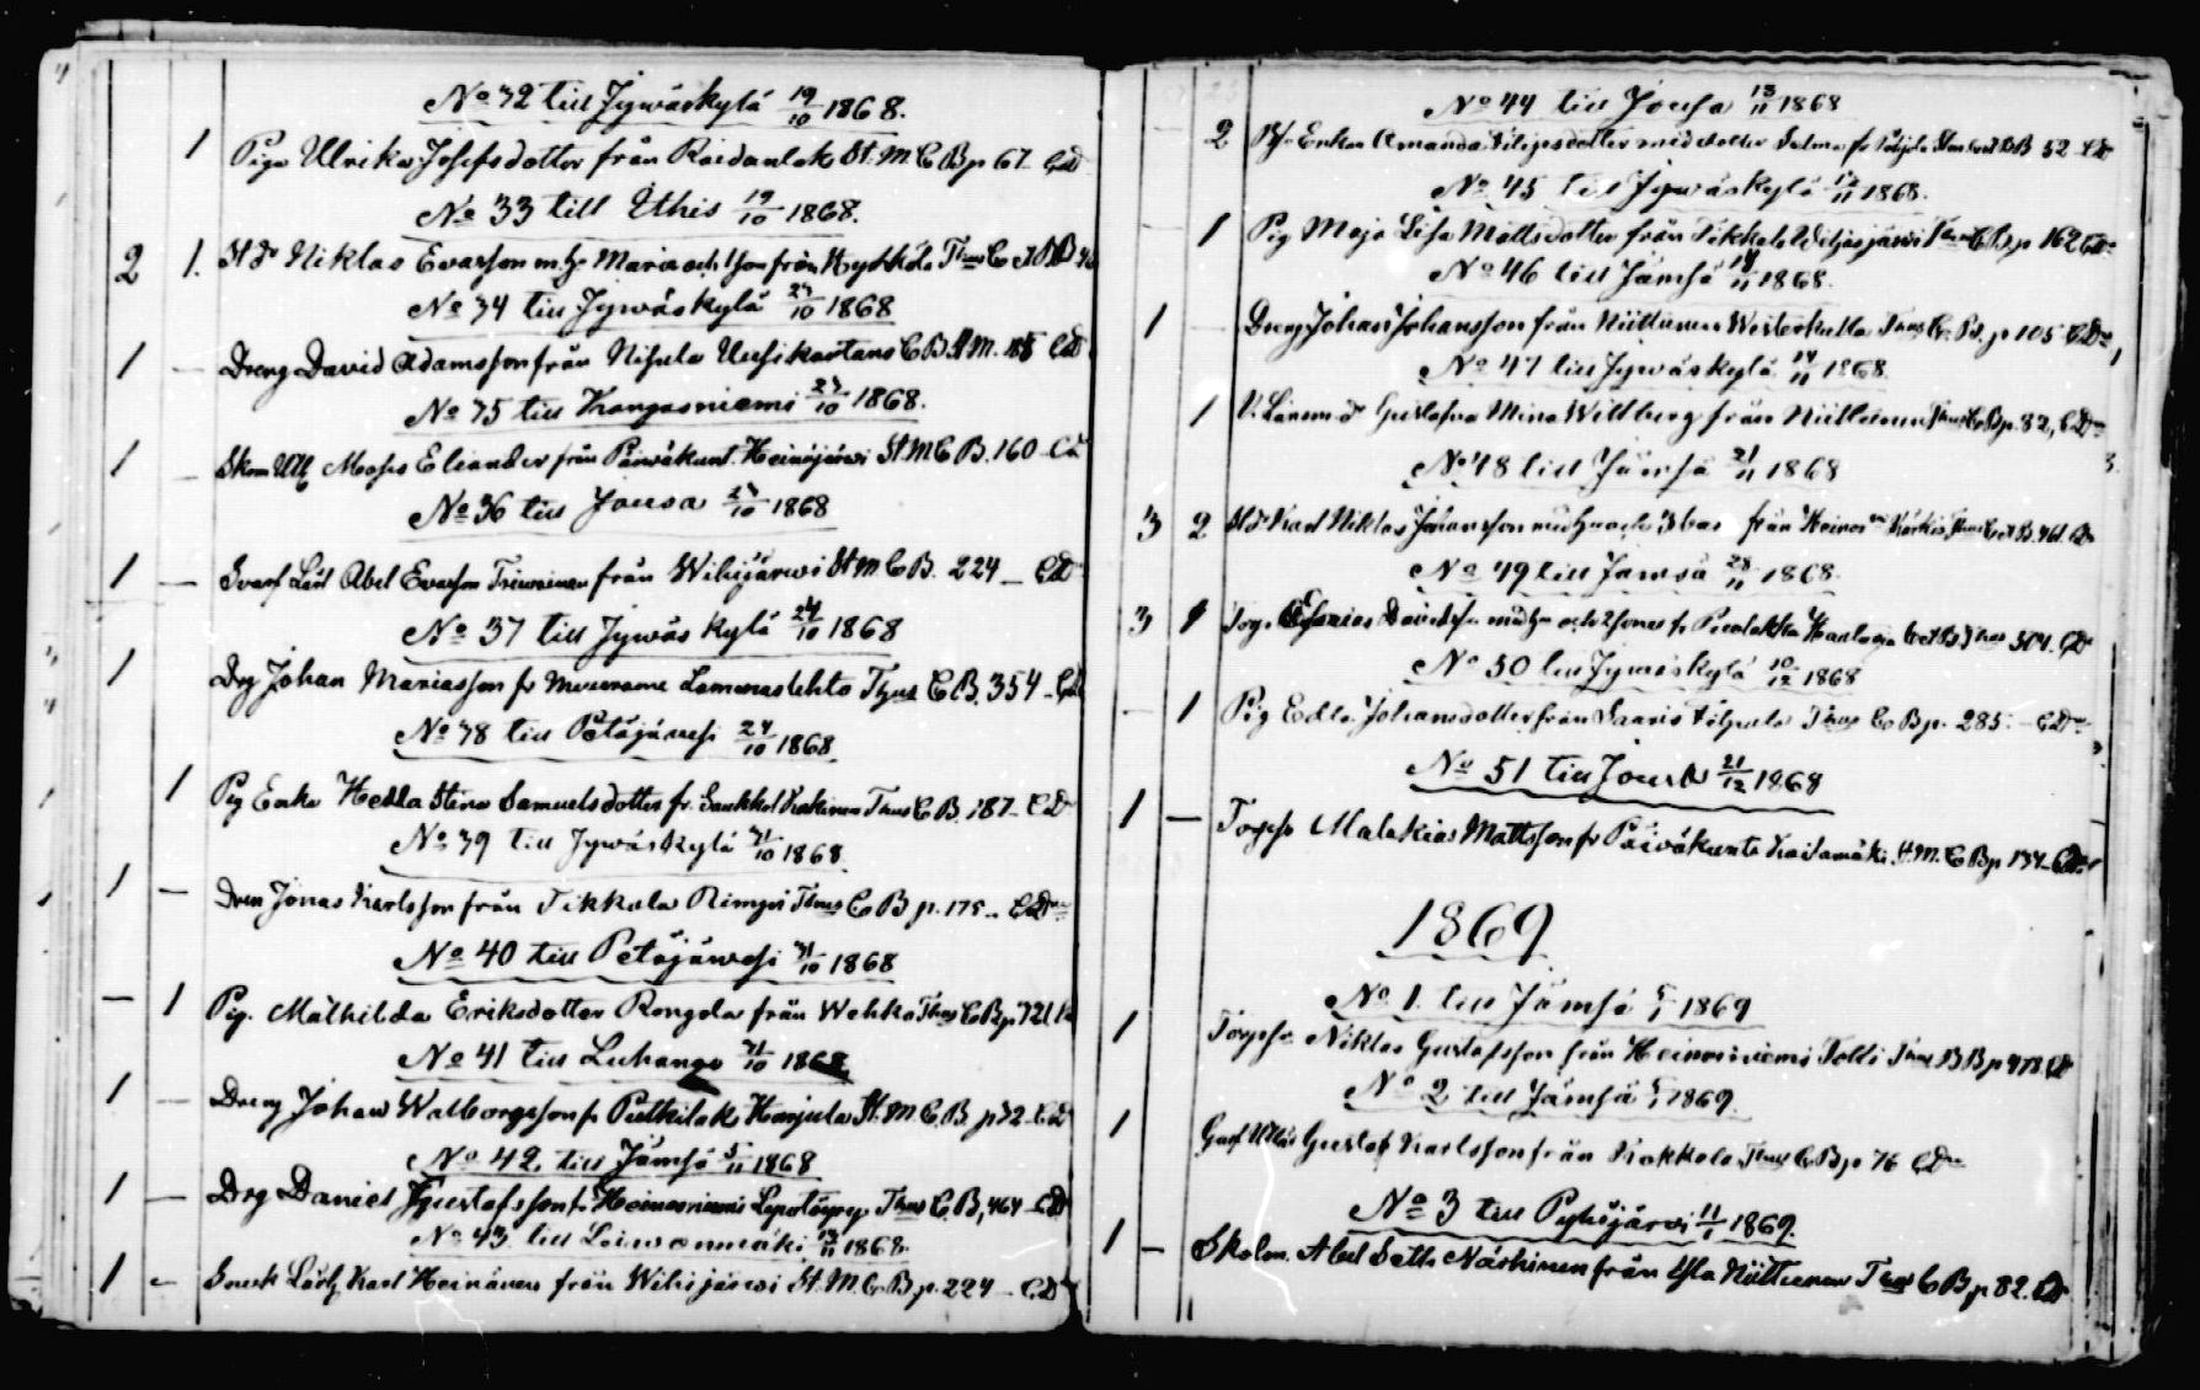 No 32 till Jywäskylä 19/10 1868.
1 Piga Ulrika Josefsdotter från Raidanlak St. M. C B p 67 CD
No 33 till Ethis 19/10 1868.
2 1. Niklas Evasson m. h. Maria och 1 son från Hyrkkölä Thus C
No 34 till Jywäskylä 23/10 1868
1 — Dreng David Adamsson från Nisula Uusikartano C B St M. CD
No 35 till Kangasniemi 23/10 1868.
1 — Moses Eliander från Päiväkunt. Heinäjärvi St. M C B. 160
No 36 till Jousa 23/10 1868
1 — Abel Evasson från Wihijärwi St M. C B. 224 — CD
No 37 till Jywäskylä 24/10 1868
1 Drg Johan Mariasson fr Muurame Lammaslehto Thus C B. 354 - CD
No 38 till Petäjäwesi 24/10 1868.
1 Pig Enka Hedda Stina Samuelsdotter fr. Thus C B. 187 - CD
No 39 till Jywäskylä 31/10 1868.
1 — Dren Jonas Karlsson från Tikkala Rimpi Thus C B p. 175 - CD
No 40 till Petäjäwesi 31/10 1868
— 1 Pig. Mathilda Eriksdotter Rongola från Wehka Thus C B p 721
No 41 till Luhango 31/10 1868
1 — Dreng Johan Walborgsson fr Putkilak Harjula St. M. C. B. p 32 - CD
No 42 till Jämsä 5/11 1868
1 — Drg Daniel Gustafsson fr. Heinosniemi Thus C. B, 464 CD
No 43 till Leiwonmäki 13/11 1868.
1 - Karl Heinänen från Wihijärwi St. M. C. B p. 224 - CD
No 44 till Jousa 13/11 1868
2 Enkan Amanda Filipsdotter med dotter Selma fr 52 CD
No 45 till Jywäskylä 13/11 1868.
1 Pig Maja Lisa Mattsdotter från Tikkala Thus C B. p 162 CD
No 46 till Jämsä 14/11 1868.
1 — Dreng Johan Johansson från Niittunen Westerkulla Thus C. B. p 105 CD
No 47 till Jywäskylä 14/11 1868.
1 Gustafva Mina Willberg från Niittunen Thus C B p. 82, CD
No 48 till Jämsä 21/11 1868
3 2 Karl Niklas Johansson med hu och 3 bar från Heinos
No 49 till Jämsä 28/11 1868.
3 1 Esaias Davidss. med hu och 2 söner fr. CD
No 50 till Jywäskylä 10/12 1868
— 1 Pig Edla Johansdotter från Saaris Thus C B p. 285. — CD
No 51 till Jousa 21/12 1868
1 — Torpso Malakias Mattsson fr Päiväkunta Haitamäki. St. M. C B p 134 - CD
1869
No 1. till Jämsä 5/1 1869
1 Torpso Niklas Gustafsson från Heinosniemi Tolli Thus B B p 478 CD
No 2 till Jämsä 5/1 1869.
1 Gustaf Karlsson från Kokkola Thus C B p 76 CD
No 3 till Pyhäjärvi 11/1 1869.
1 — Skolm. Abel Seth Närhinen från Yla Niittunen Thus C B p 82. CD